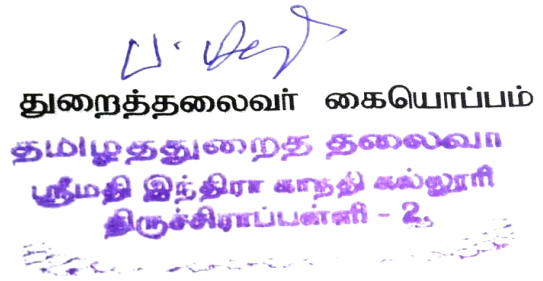 துறைத்தலைவர் கையொப்பம்
தமிழ்த்துறைத் தலைவர்
ஸ்ரீமதி இந்திரா காந்தி கல்லூரி
திருச்சிராப்பள்ளி - 2.